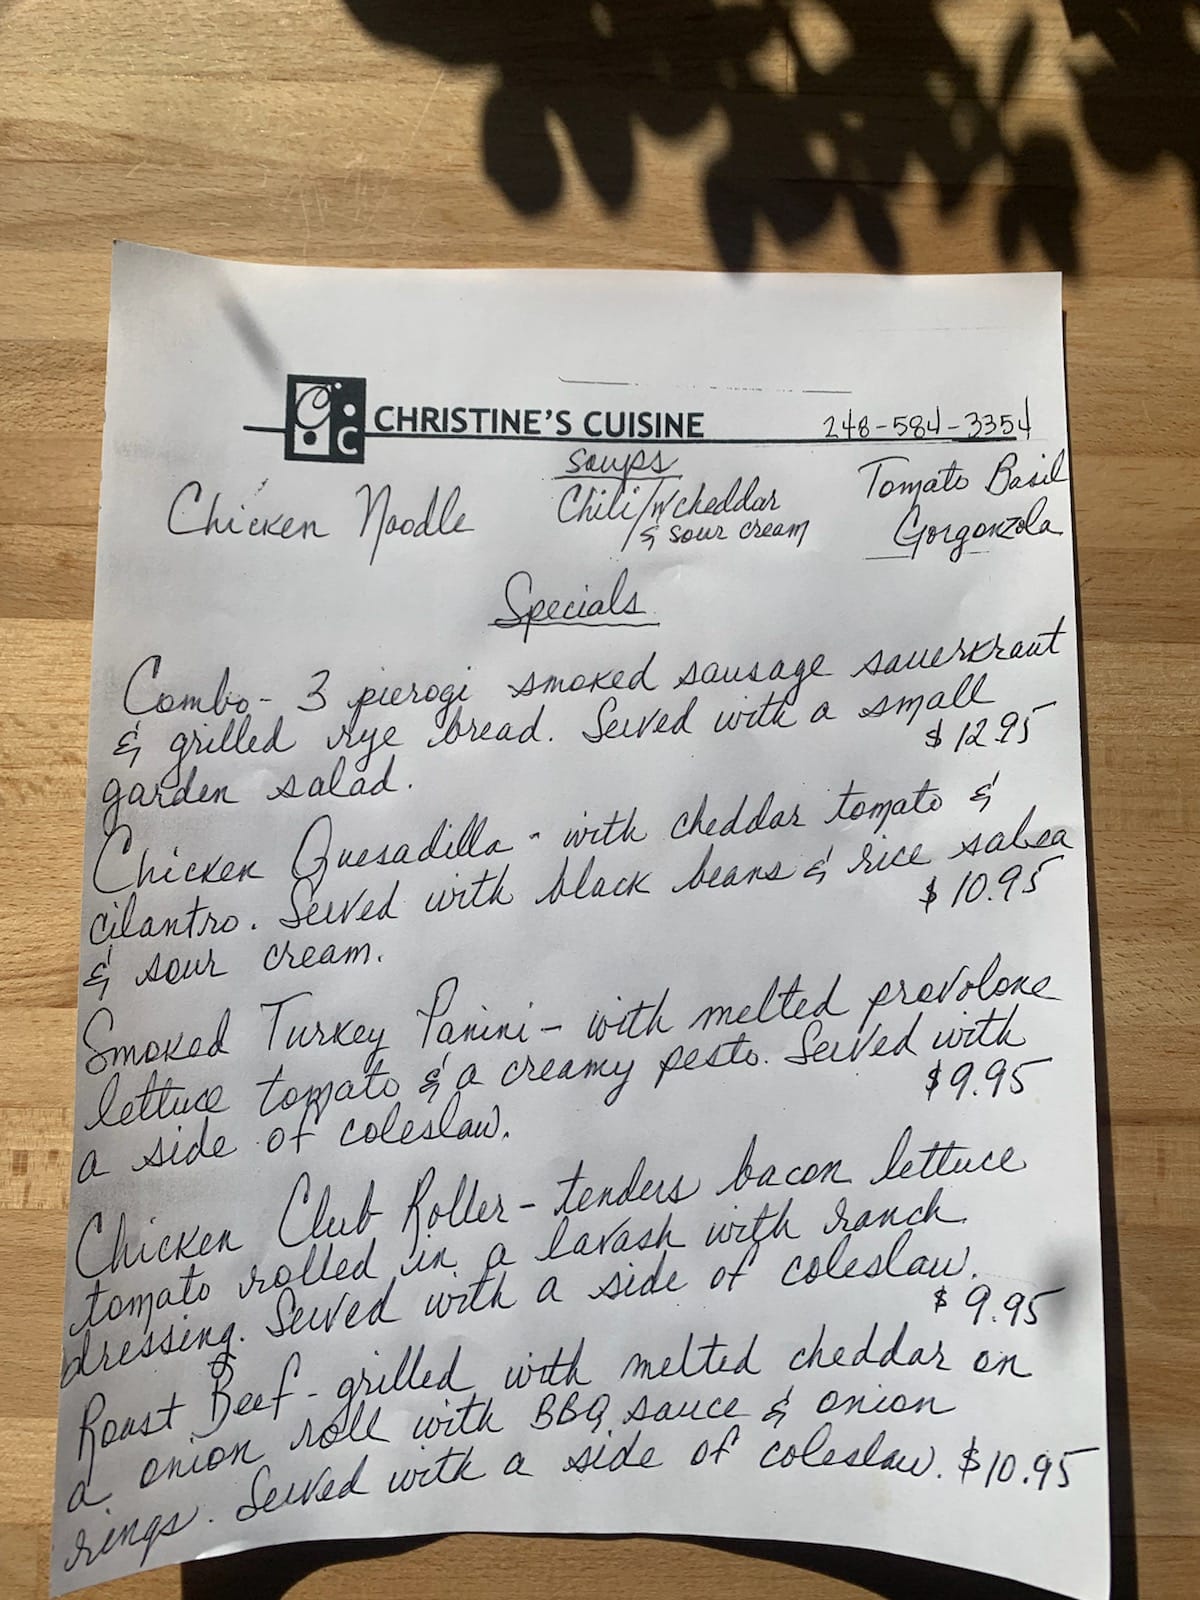 C C CHRISTINE'S CUISINE 248-584-3354
Soups
Chicken Noodle
Chili/w cheddar
& sour cream
Tomato Basil
Gorgonzola
Specials
Combo- 3 pierogi smoked sausage sauerkraut
& grilled rye bread. Served with a small
garden salad. $12.95
Chicken Quesadilla - with cheddar tomato &
cilantro. Served with black beans & rice salsa
& sour cream. $10.95
Smoked Turkey Panini - with melted provolone
lettuce tomato & a creamy pesto. Served with
a side of coleslaw. $9.95
Chicken Club Roller - tenders bacon lettuce
tomato rolled in a lavash with ranch
dressing. Served with a side of coleslaw. $9.95
Roast Beef - grilled with melted cheddar on
a onion roll with BBQ sauce & onion
rings. Served with a side of coleslaw. $10.95